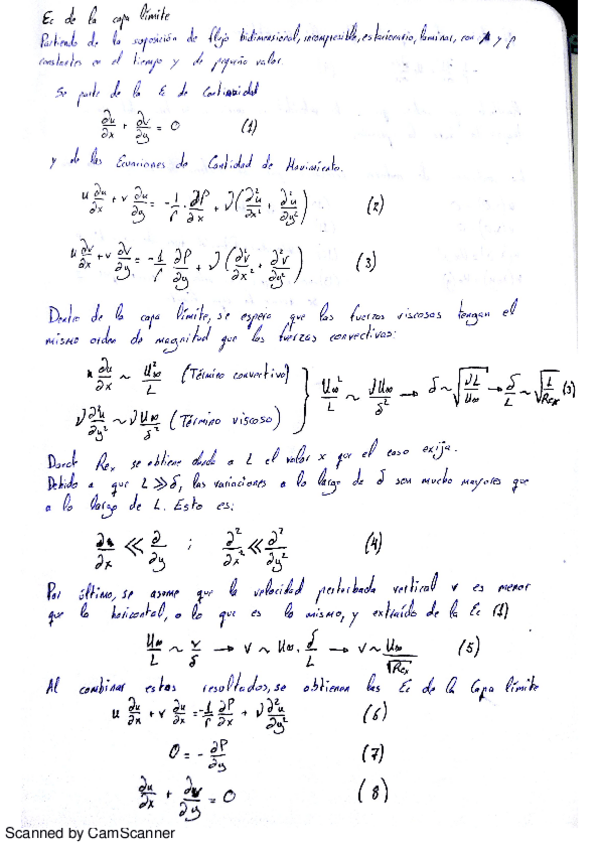 Ec de la capa límite
Partiendo de la suposición de flujo bidimensional, incompresible, estacionario, laminar, con μ y ρ
constantes en el tiempo y de pequeño valor.
Se parte de la E de Continuidad
∂u/∂x + ∂v/∂y = 0 (1)
y de las Ecuaciones de Cantidad de Movimiento.
u ∂u/∂x + v ∂u/∂y = -1/ρ · ∂P/∂x + ν(∂²u/∂x² + ∂²u/∂y²) (2)
u ∂v/∂x + v ∂v/∂y = -1/ρ ∂P/∂y + ν(∂²v/∂x² + ∂²v/∂y²) (3)
Dentro de la capa límite, se espera que las fuerzas viscosas tengan el
mismo orden de magnitud que las fuerzas convectivas:
u ∂u/∂x ~ U∞²/L (Término convectivo)
ν ∂²u/∂y² ~ ν U∞/δ² (Término viscoso)
} U∞²/L ~ νU∞/δ² → δ ~ √(νL/U∞) → δ/L ~ √(1/Rex) (3)
Donde Rex se obtiene dando a L el valor x que el caso exija.
Debido a que L ≫ δ, las variaciones a lo largo de δ son mucho mayores que
a lo largo de L. Esto es:
∂/∂x ≪ ∂/∂y ; ∂²/∂x² ≪ ∂²/∂y² (4)
Por último, se asume que la velocidad perturbada vertical v es menor
que la horizontal, o lo que es lo mismo, y extraído de la Ec (1)
U∞/L ~ v/δ → v ~ U∞ · δ/L → v ~ U∞/√Rex (5)
Al combinar estos resultados, se obtienen las Ec de la Capa límite
u ∂u/∂x + v ∂u/∂y = -1/ρ ∂P/∂x + ν ∂²u/∂y² (6)
0 = - ∂P/∂y (7)
∂u/∂x + ∂v/∂y = 0 (8)
Scanned by CamScanner